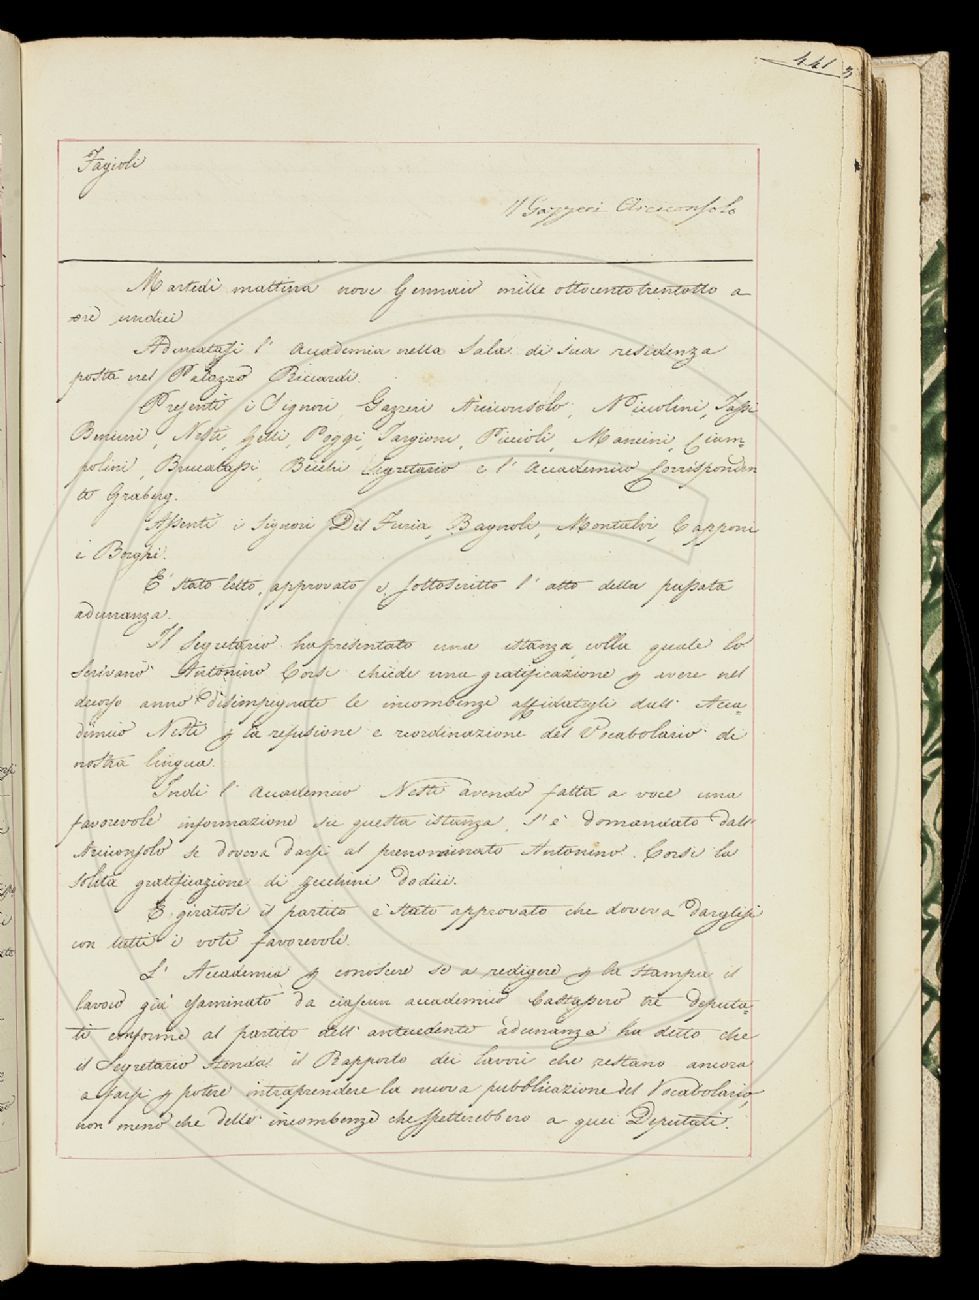 441 3
Fagioli
V Gazzeri Arciconsolo
Martedì mattina nove Gennaio mille ottocento trentotto a
ore undici
Adunatasi l' Accademia nella Sala di sua residenza
posta nel Palazzo Riccardi.
Presenti i Signori Gazzeri Arciconsolo, Niccolini, Tassi
Bencini, Nesti, Gelli, Poggi, Targioni, Piccioli, Mancini, Ciam=
polini, Brucalassi, Becchi Segretario e l' Accademico Corrisponden
te Graberg.
Assenti i Signori Del Furia, Bagnoli, Montalvi, Capponi
e Borghi.
E' stato letto, approvato e sottoscritto l' atto della passata
adunanza.
Il Segretario ha presentato una istanza colla quale lo
scrivano Antonino Corsi chiede una gratificazione p avere nel
decorso anno disimpegnate le incombenze affidategli dall' Acca=
demico Nesti p la refusione e reordinazione del Vocabolario di
nostra lingua.
Indi l' Accademico Nesti avendo fatta a voce una
favorevole informazione su questa istanza, s' è domandato dall'
Arciconsolo se doveva darsi al prenominato Antonino Corsi la
solita gratificazione di zecchini dodici.
E giratosi il partito è stato approvato che doveva darglisi
con tutti i voti favorevoli.
L' Accademia p conoscere se a redigere p la stampa il
lavoro già esaminato da ciascun accademico bastassero tre deputa=
ti conforme al partito dell' antecedente adunanza ha detto che
il Segretario stenda il Rapporto dei lavori che restano ancora
a farsi p potere intraprendere la nuova pubblicazione del Vocabolario,
non meno che delle incombenze che spetterebbero a quei Deputati.